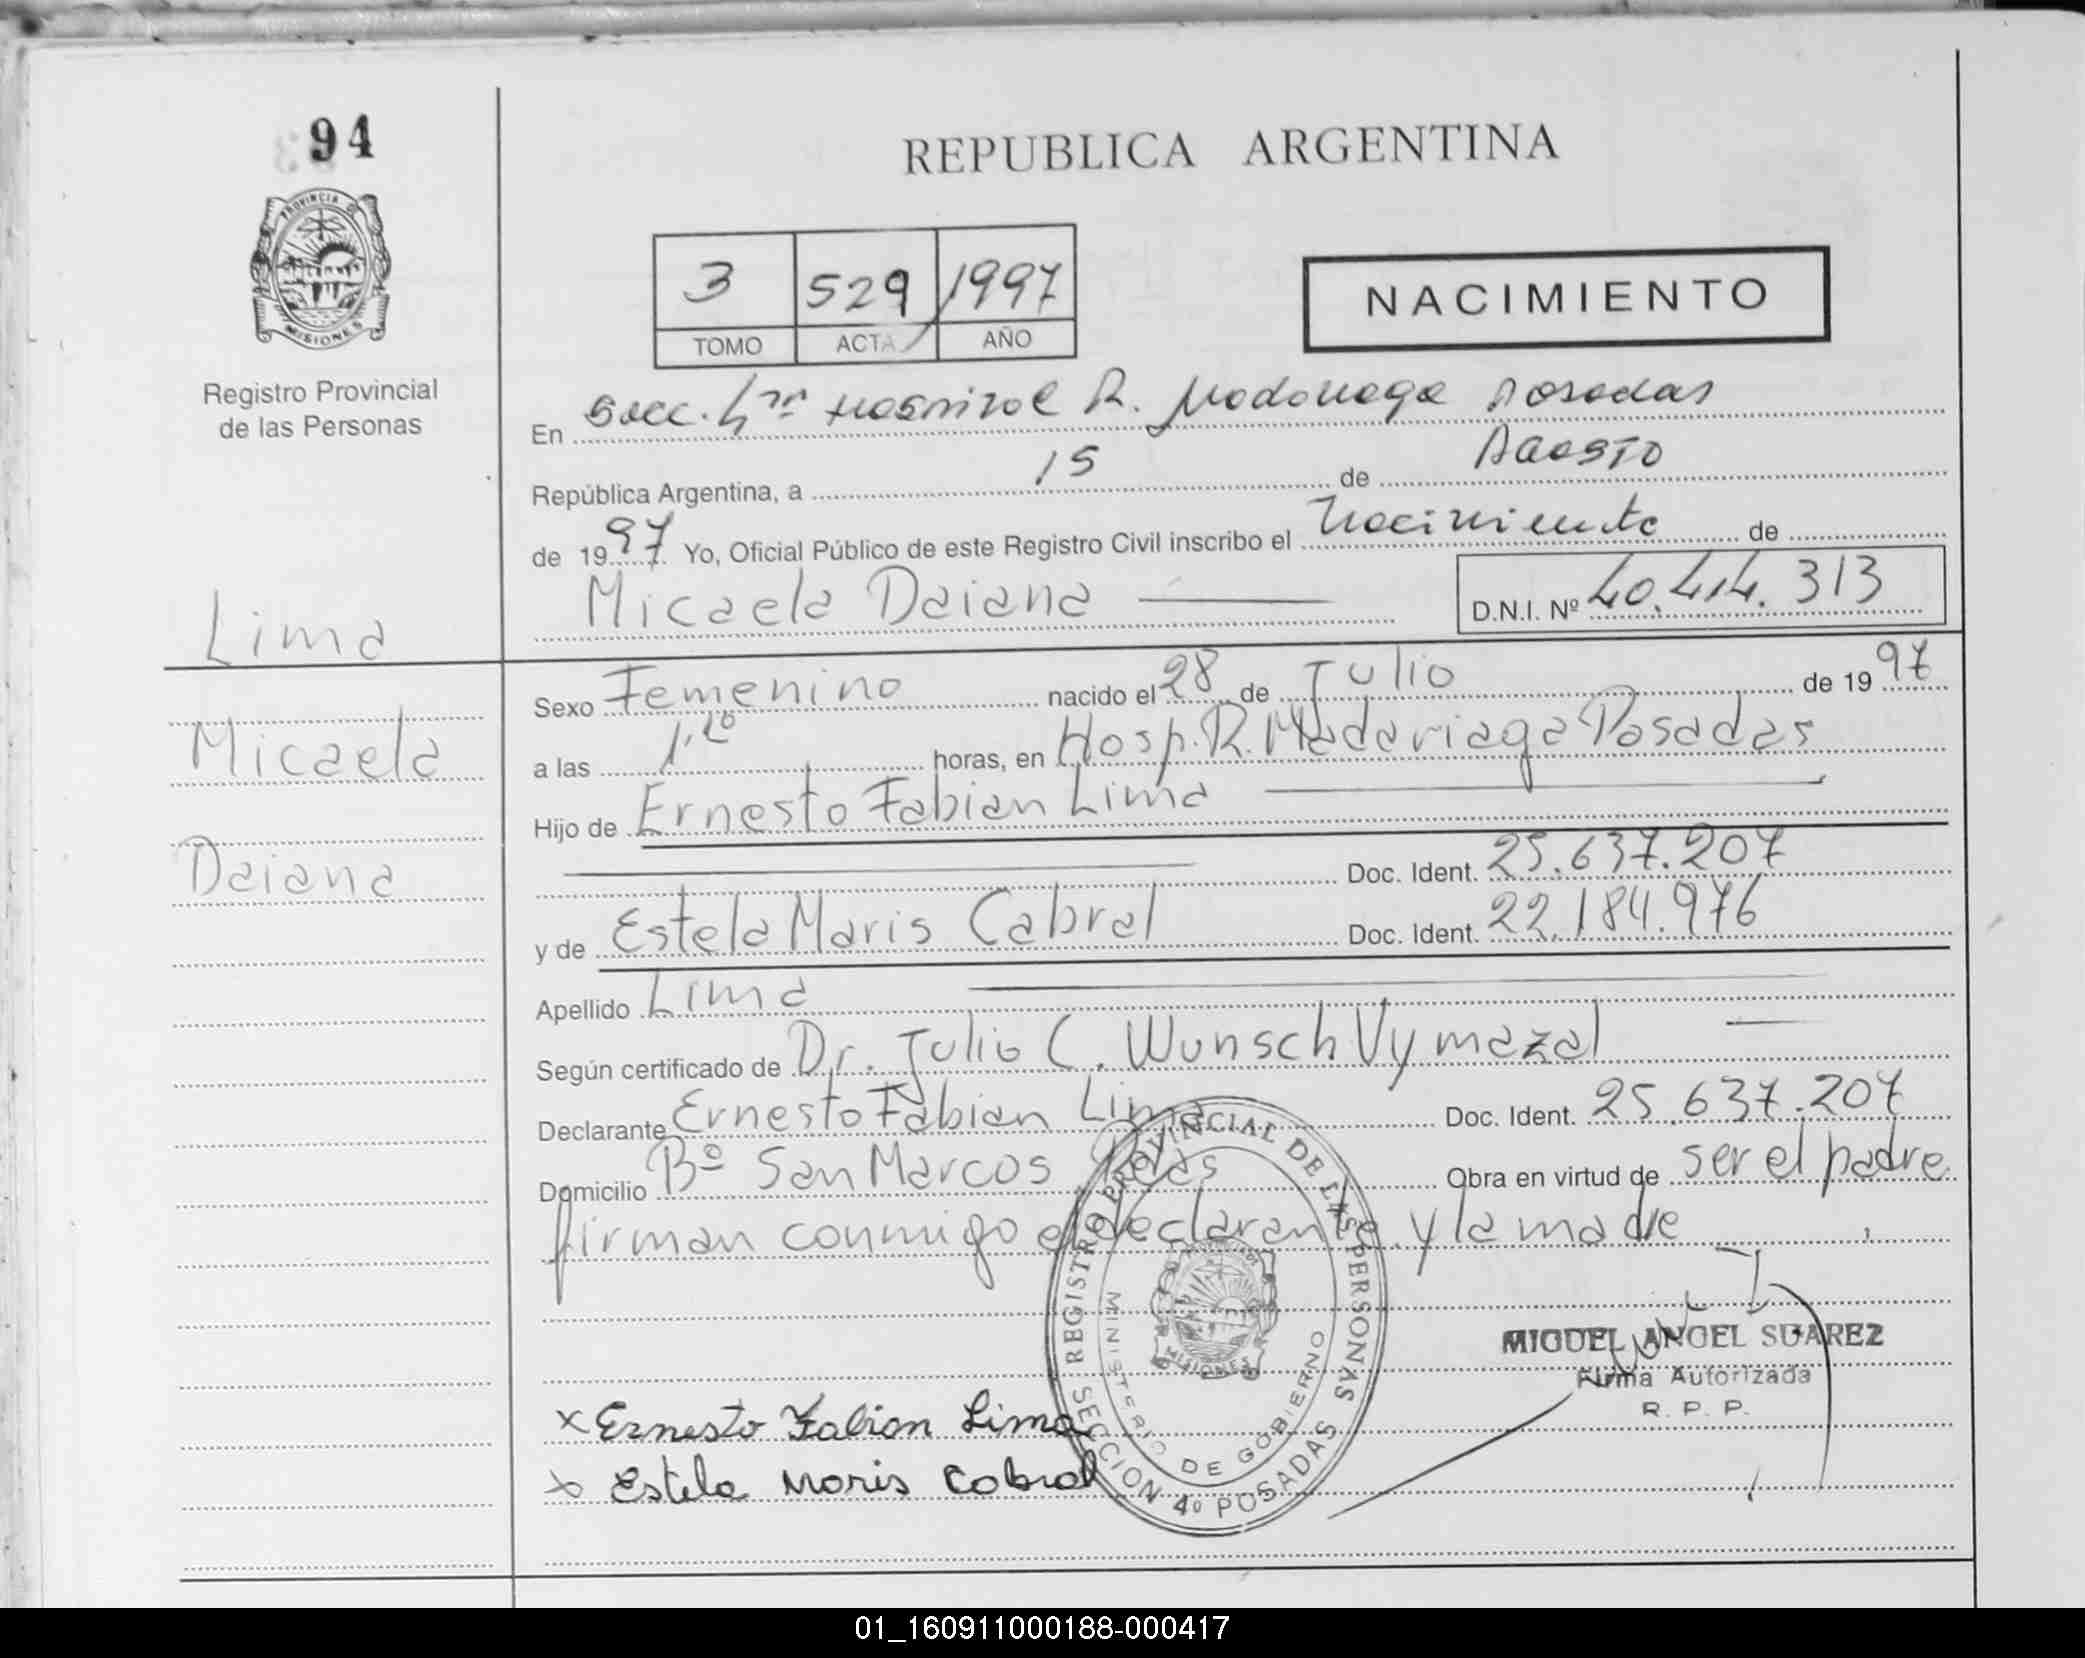 94
PROVINCIA DE
MISIONES
Registro Provincial
de las Personas
REPUBLICA ARGENTINA
3 529 1997
TOMO ACTA AÑO
NACIMIENTO
En Secc. 4ta Hospital R. Madariaga Posadas
República Argentina, a 15 de Agosto
de 1997 Yo, Oficial Público de este Registro Civil inscribo el Nacimiento de
Micaela Daiana D.N.I. Nº 40.414.313
Lima
Micaela
Daiana
Sexo Femenino nacido el 28 de Julio de 1997
a las horas, en Hosp. R. Madariaga Posadas
Hijo de Ernesto Fabian Lima
Doc. Ident. 25.637.207
y de Estela Maris Cabral Doc. Ident. 22.184.976
Apellido Lima
Según certificado de Dr. Julio C. Wunsch Vymazal
Declarante Ernesto Fabian Lima Doc. Ident. 25.637.207
Domicilio Bº San Marcos Pdas Obra en virtud de ser el padre
firman conmigo el declarante y la madre
REGISTRO PROVINCIAL DE LAS PERSONAS
MINISTERIO DE GOBIERNO
MISIONES
SECCION 4º POSADAS
MIGUEL ANGEL SUAREZ
Firma Autorizada
R. P. P.
x Ernesto Fabian Lima
x Estela Maris Cabral
01_160911000188-000417